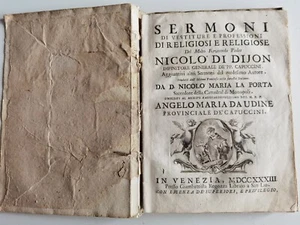 SERMONI
DI VESTITURE E PROFESSIONI
DI RELIGIOSI E RELIGIOSE
Del Molto Reverendo Padre
NICOLO DI DIJON
DIFFINITORE GENERALE DE' PP. CAPUCCINI.
Aggiuntivi altri Sermoni del medesimo Autore,
DA D. NICOLO MARIA LA PORTA
Sacerdote della Cattedral di Monopoli.
ANGELO MARIA DA UDINE
PROVINCIALE DE' CAPUCCINI.
IN VENEZIA, MDCCXXXIII
CON LICENZA DE' SUPERIORI, E PRIVILEGIO.